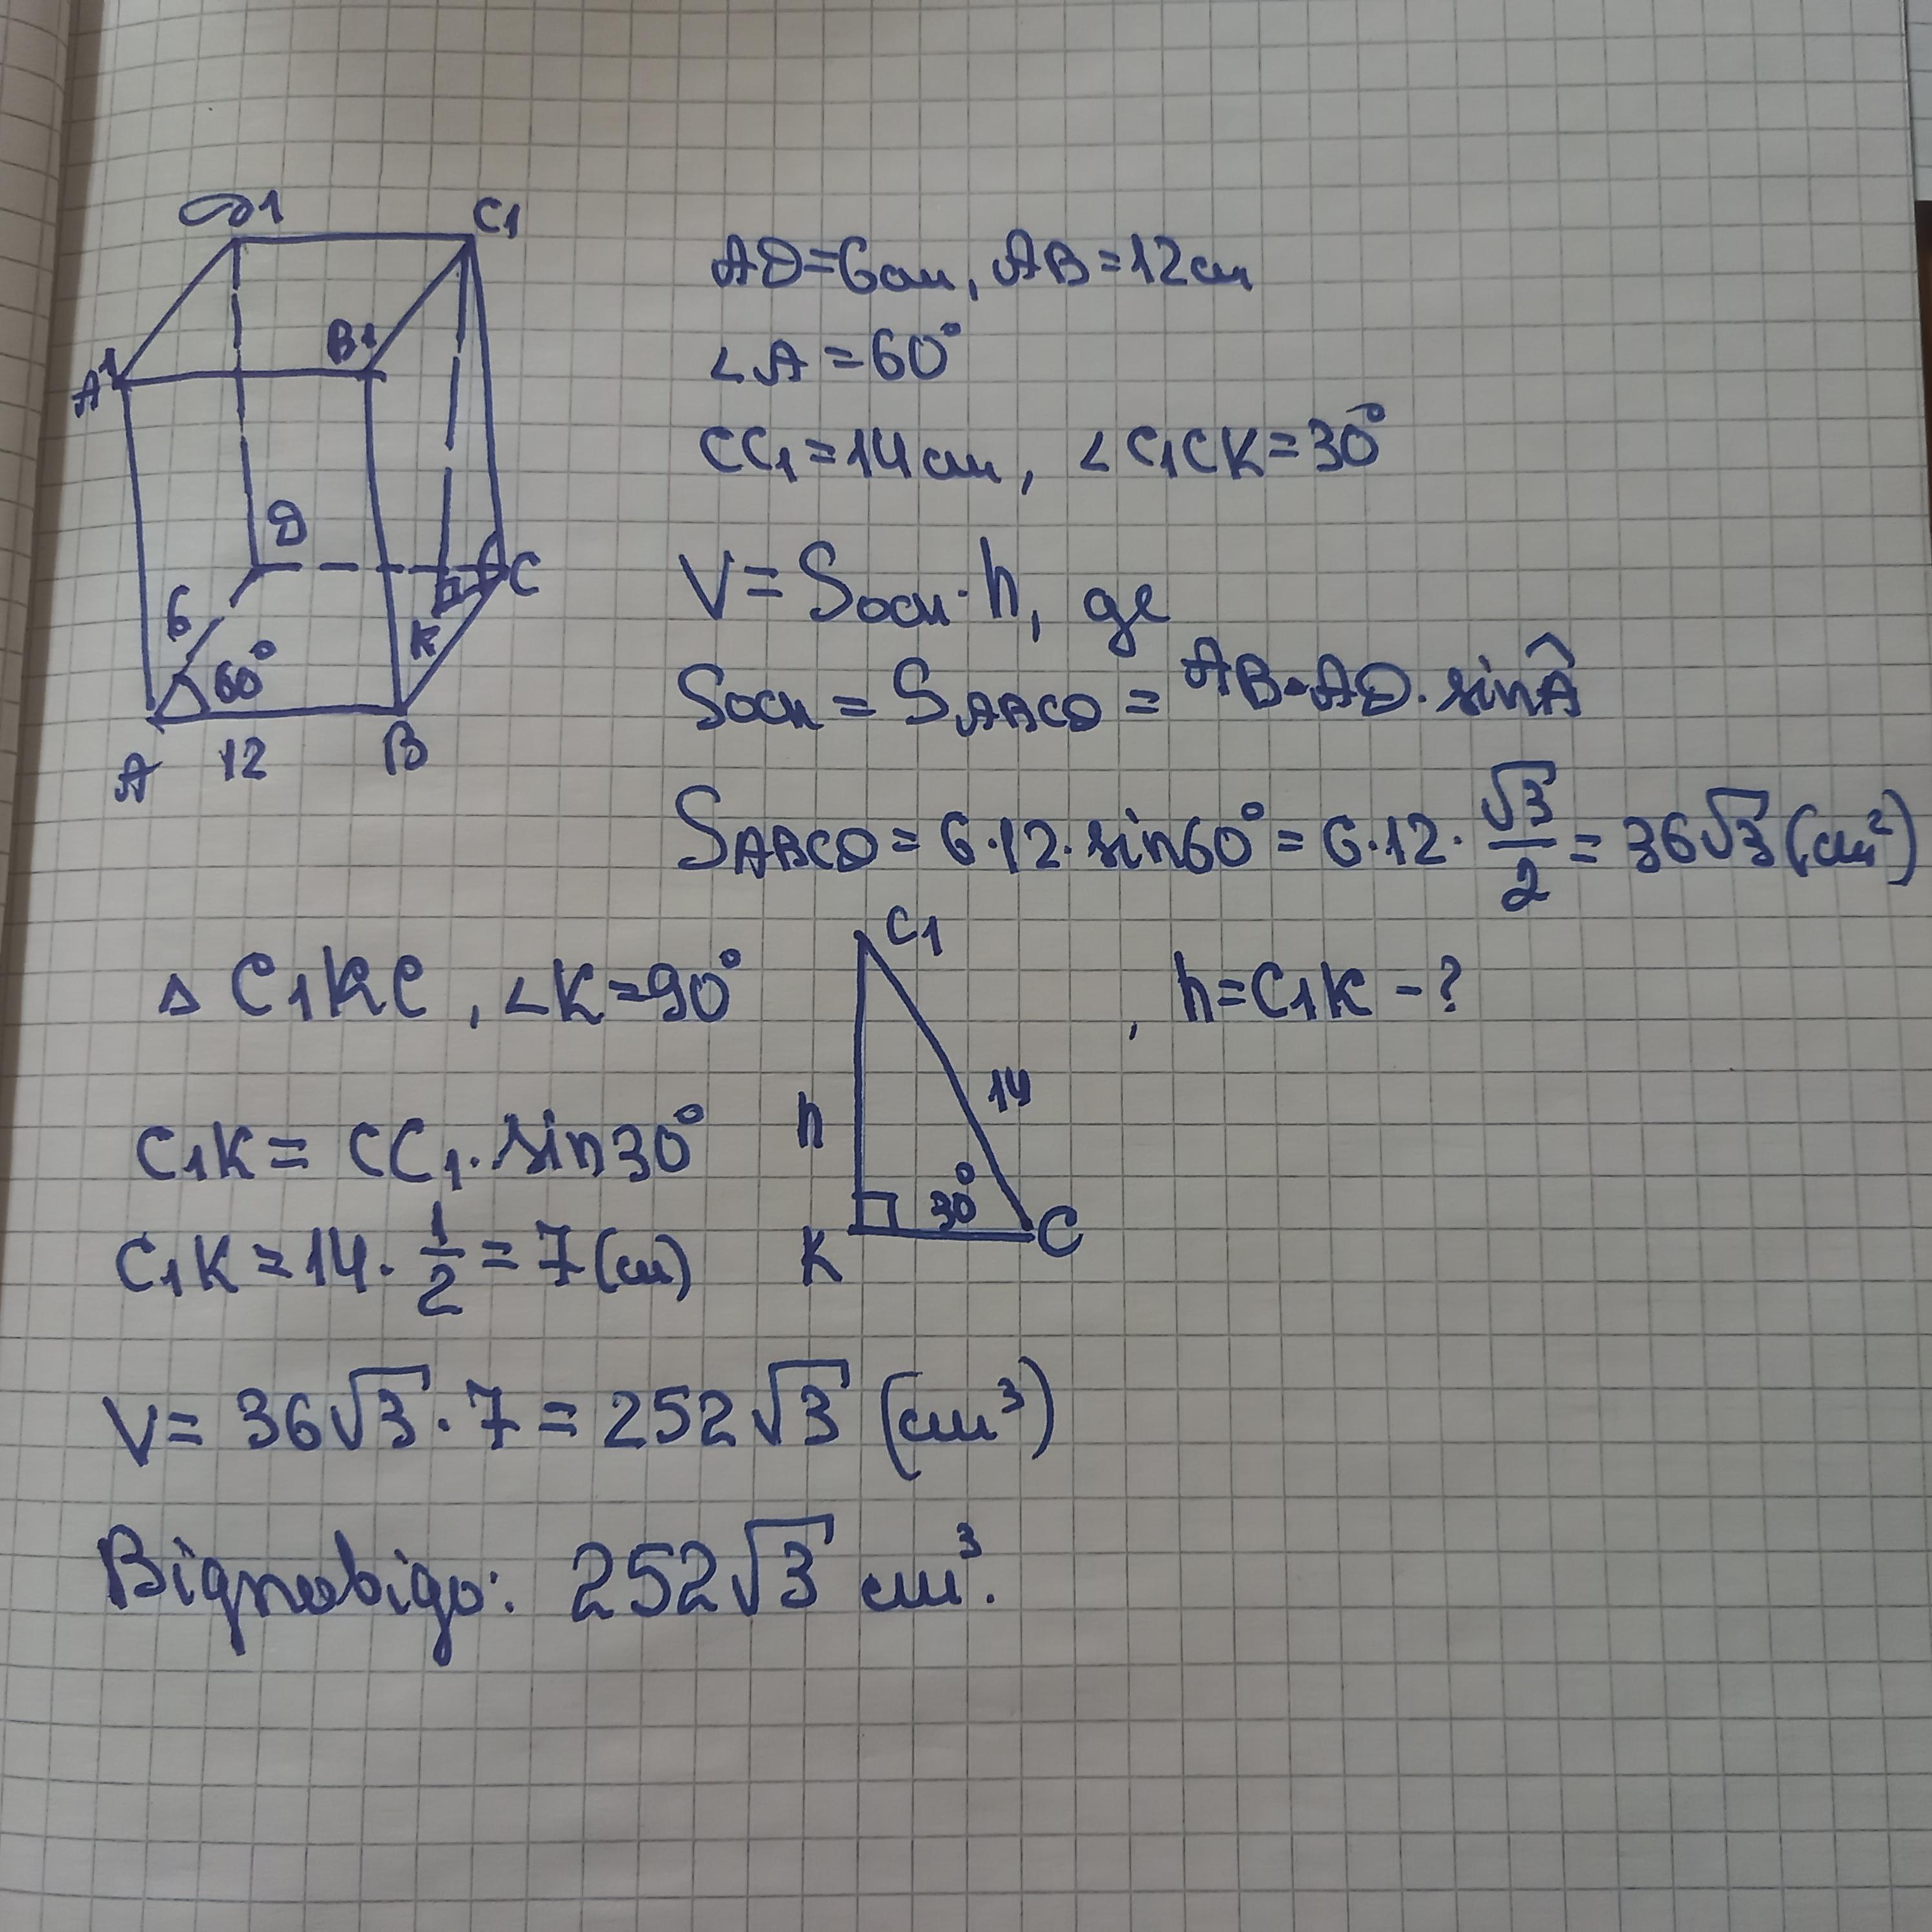 D1
C1
A1
B1
D
C
6
K
60°
A
12
B
AD=6см, AB=12см
∠A=60°
CC₁=14см, ∠C₁CK=30°
V=Sосн·h, де
Sосн=SABCD=AB·AD·sinÂ
SABCD=6·12·sin60°=6·12·√3/2=36√3(см²)
△C₁KC, ∠K=90°
C1
h
14
30°
K
C
, h=C₁K-?
C₁K=CC₁·sin30°
C₁K=14·1/2=7(см)
V=36√3·7=252√3 (см³)
Відповідь: 252√3 см³.